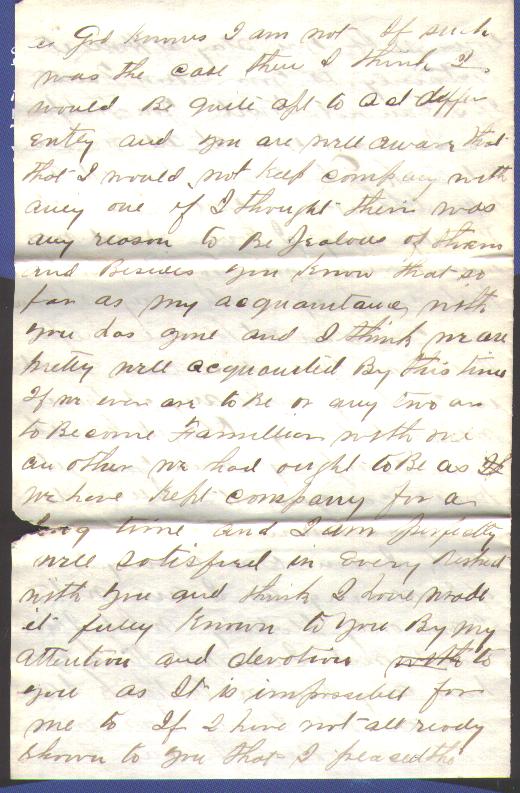 as God knows I am not If such
was the case then I think I
would Be quite apt to act differ
ently and you are well aware that
that I would not keep company with
any one if I thought their was
any reason to Be Jealous of them
and Besides you know that so
far as my acquaintance with
you has gone and I think we are
pretty well acquainted By this time
If we ever are to Be or any two are
to Become Familliar with one
an other we had ought to Be as
we have kept company for a
long time and I am perfectly
well satisfied in Every respect
with you and think I have made
it fully Known to you By my
attention and devotion with to
you as It is impossibel for
me to If I have not all ready
shown to you that I